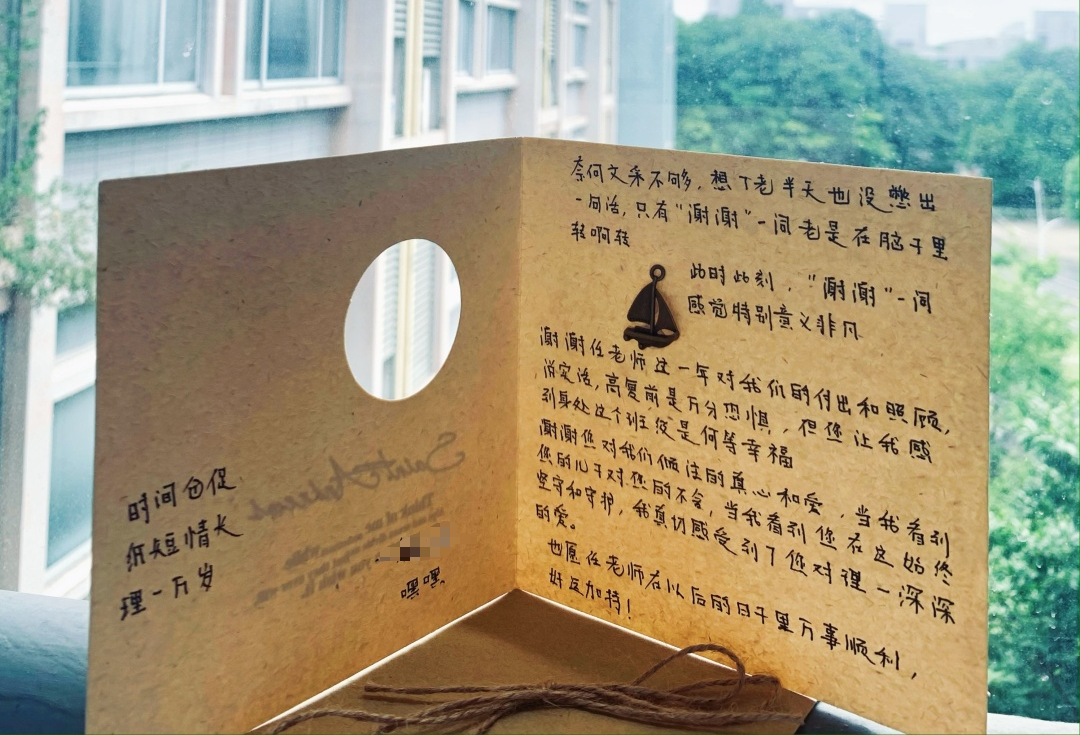 时间仓促
纸短情长
理一万岁
嘿嘿
奈何文采不够，想了老半天也没憋出
一句话，只有“谢谢”一词老是在脑子里
转啊转
此时此刻，“谢谢”一词
感觉特别意义非凡
谢谢任老师这一年对我们的付出和照顾，
说实话，高复前是万分恐惧，但您让我感
到身处这个班级是何等幸福
谢谢您对我们倾注的真心和爱，当我看到
您的儿子对您的不舍，当我看到您在这始终
坚守和守护，我真切感受到了您对理一深深
的爱。
也愿任老师在以后的日子里万事顺利，
好运加持！